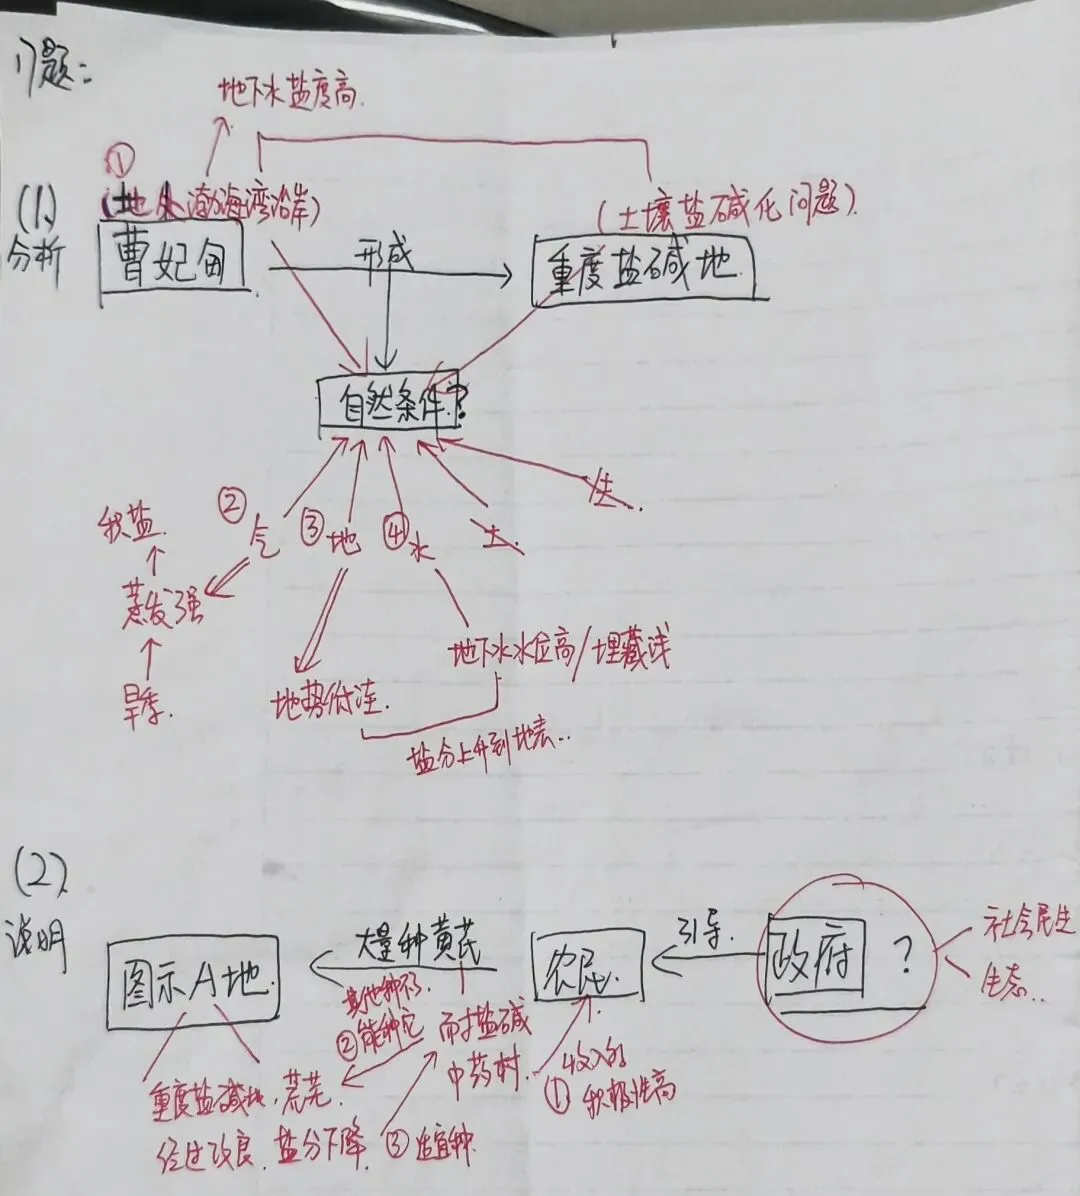 问题:
地下水盐度高.
①
(地处渤海湾沿岸)
(土壤盐碱化问题).
(1)
分析
曹妃甸
形成
重度盐碱地
自然条件?
② 气
③ 地
④ 水
土
生
积盐
蒸发强
旱季.
地势低洼.
地下水水位高/埋藏浅
盐分上升到地表..
(2)
说明
图示A地.
大量种黄芪
农民.
引导.
政府?
社会民生
生态..
其他种不了
②能种它
耐盐碱
中药材.
收入多
① 积极性高
重度盐碱地,荒芜.
经过改良.盐分下降.
③适宜种